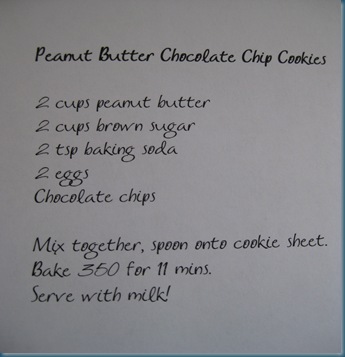 Peanut Butter Chocolate Chip Cookies
2 cups peanut butter
2 cups brown sugar
2 tsp baking soda
2 eggs
Chocolate chips
Mix together, spoon onto cookie sheet.
Bake 350 for 11 mins.
Serve with milk!